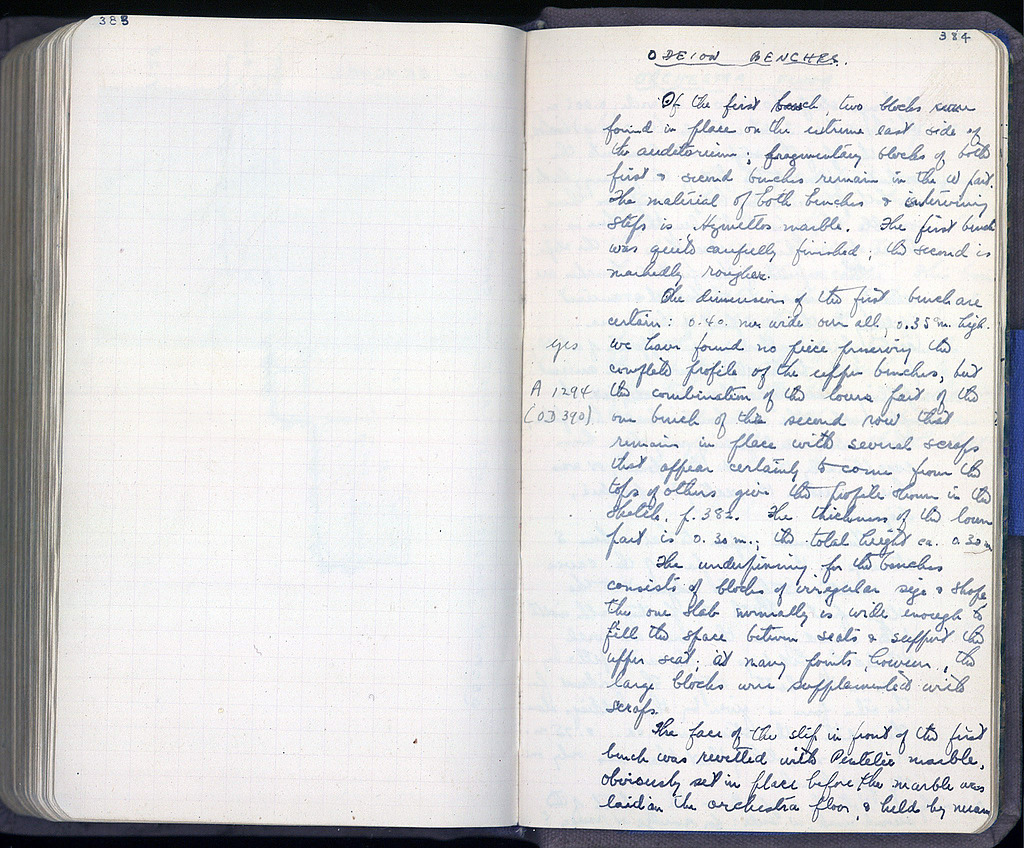 383
384
ODEION BENCHES.
Of the first bench, two blocks were
found in place on the extreme east side of
the auditorium; fragmentary blocks of both
first & second benches remain in the W part.
The material of both benches & intervening
steps is Hymettos marble. The first bench
was quite carefully finished; the second is
markedly rougher.
The dimensions of the first bench are
certain: 0.40 m. wide over all, 0.35 m. high.
yes
we have found no piece preserving the
complete profile of the upper benches, but
A 1294
the combination of the lower part of the
(OD 390)
one bench of the second row that
remains in place with several scraps
that appear certainly to come from the
tops of others give the profile shown in the
sketch, p. 382. The thickness of the lower
part is 0.30 m.; the total height ca.
The underpinning for the benches
consists of blocks of irregular size & shape
the one slab normally is wide enough to
fill the space between seats & support the
upper seat; at many points, however, the
large blocks were supplemented with
scraps.
The face of the step in front of the first
bench was revetted with Pentelic marble,
obviously set in place before the marble was
laid in the orchestra floor, & held by means